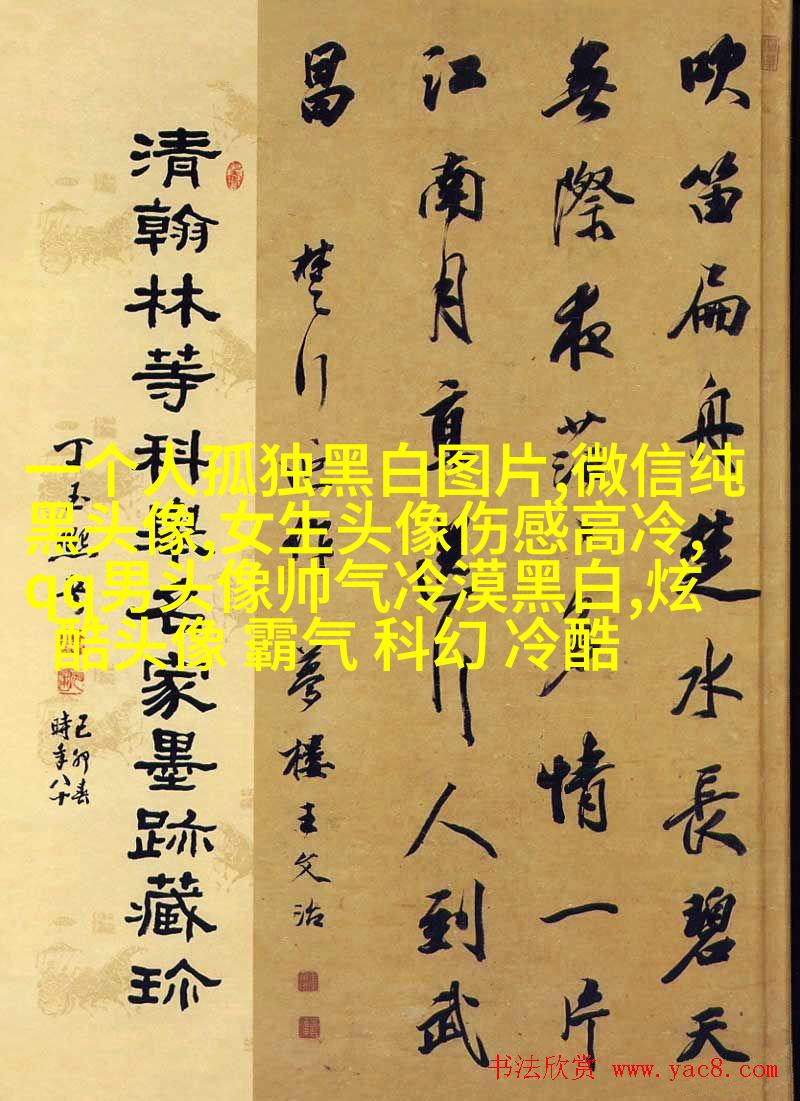 吹笛扁舟楚水長碧天
無際夜茫情一片
江南月直照行人到武
昌
楚行 夢樓王文治
清翰林等科家墨跡藏珍
丁玉
己卯春
時年八十
一个人孤独黑白图片,微信纯
黑头像,女生头像伤感高冷,
qq男头像帅气冷漠黑白,炫
酷头像 霸气 科幻 冷酷
书法欣赏 www.yac8.com